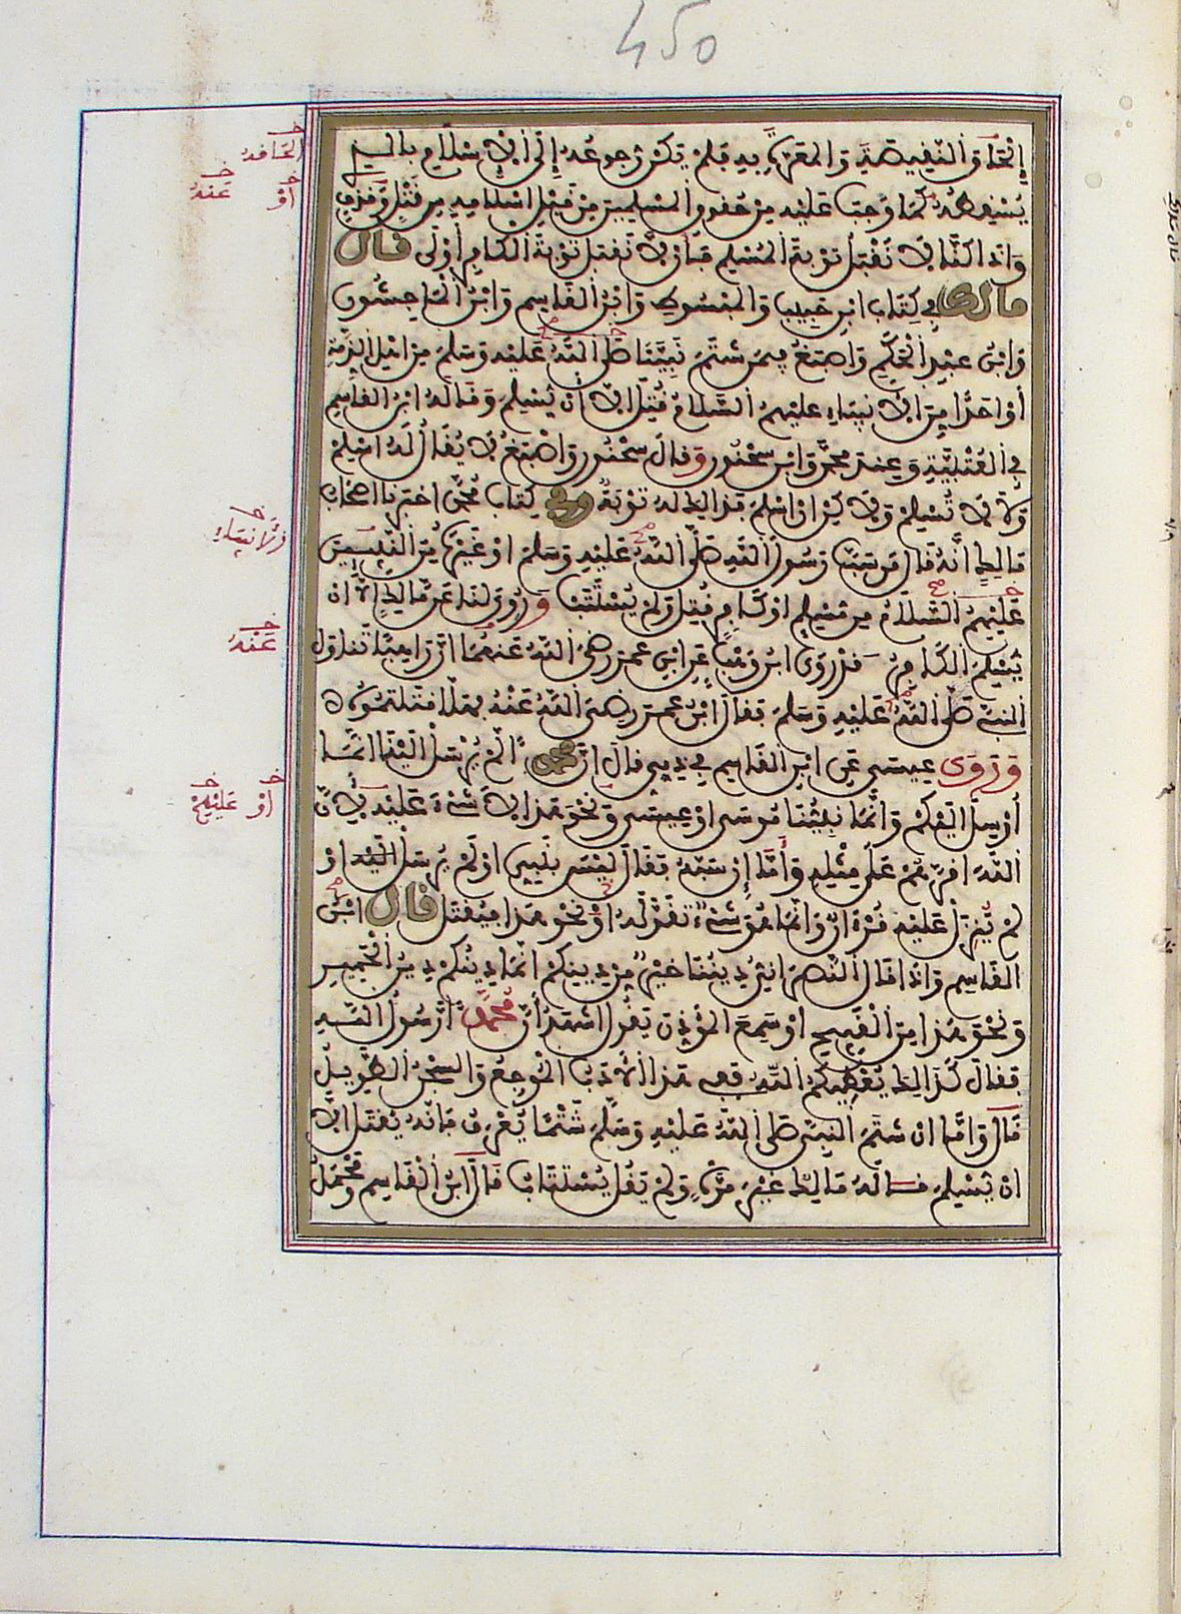 450
إِلْحَاقَ النَّقِيصَةِ وَالْمَعَرَّةِ بِهِ فَلَمْ يَكُنْ رُجُوعُهُ إِلَى الْإِسْلَامِ بِالَّذِي
يُسْقِطُهُ كَمَا وَجَبَ عَلَيْهِ مِنْ حُقُوقِ الْمُسْلِمِينَ مِنْ قَبْلِ إِسْلَامِهِ مِنْ قَتْلٍ وَقَذْفٍ
وَإِذَا كُنَّا لَا نَقْبَلُ تَوْبَةَ الْمُسْلِمِ فَبِأَنْ لَا نَقْبَلَ تَوْبَةَ الْكَافِرِ أَوْلَى قَالَ
مَالِكٌ فِي كِتَابِ ابْنِ حَبِيبٍ وَالْمَبْسُوطِ وَابْنُ الْقَاسِمِ وَابْنُ الْمَاجِشُونِ
وَابْنُ عَبْدِ الْحَكَمِ وَأَصْبَغُ فِيمَنْ شَتَمَ نَبِيَّنَا صَلَّى اللَّهُ عَلَيْهِ وَسَلَّمَ مِنْ أَهْلِ الذِّمَّةِ
أَوْ أَحَدًا مِنَ الْأَنْبِيَاءِ عَلَيْهِمُ السَّلَامُ قُتِلَ إِلَّا أَنْ يُسْلِمَ وَقَالَهُ ابْنُ الْقَاسِمِ
فِي الْعُتْبِيَّةِ وَعِنْدَ مُحَمَّدٍ وَابْنِ سَحْنُونٍ وَقَالَ سَحْنُونٌ وَأَصْبَغُ لَا يُقَالُ لَهُ أَسْلِمْ
وَلَا لَا تُسْلِمْ وَلَكِنْ إِنْ أَسْلَمَ فَذَلِكَ لَهُ تَوْبَةٌ وَفِي كِتَابِ مُحَمَّدٍ أَخْبَرَنَا أَصْحَابُ
مَالِكٍ أَنَّهُ قَالَ مَنْ سَبَّ رَسُولَ اللَّهِ صَلَّى اللَّهُ عَلَيْهِ وَسَلَّمَ أَوْ غَيْرَهُ مِنَ النَّبِيِّينَ
عَلَيْهِمُ السَّلَامُ مِنْ مُسْلِمٍ أَوْ كَافِرٍ قُتِلَ وَلَمْ يُسْتَتَبْ وَرُوِيَ لَنَا عَنْ مَالِكٍ إِلَّا أَنْ
يُسْلِمَ الْكَافِرُ وَقَدْ رَوَى ابْنُ وَهْبٍ عَنِ ابْنِ عُمَرَ رَضِيَ اللَّهُ عَنْهُمَا أَنَّ رَاهِبًا تَنَاوَلَ
النَّبِيَّ صَلَّى اللَّهُ عَلَيْهِ وَسَلَّمَ فَقَالَ ابْنُ عُمَرَ رَضِيَ اللَّهُ عَنْهُ فَهَلَّا قَتَلْتُمُوهُ
وَرَوَى عِيسَى عَنِ ابْنِ الْقَاسِمِ فِي ذِمِّيٍّ قَالَ إِنَّ مُحَمَّدًا لَمْ يُرْسَلْ إِلَيْنَا إِنَّمَا
أُرْسِلَ إِلَيْكُمْ وَإِنَّمَا نَبِيُّنَا مُوسَى أَوْ عِيسَى وَنَحْوَ هَذَا لَا شَيْءَ عَلَيْهِ لِأَنَّ
اللَّهَ أَقَرَّهُمْ عَلَى مِثْلِهِ وَأَمَّا إِنْ سَبَّهُ فَقَالَ لَيْسَ بِنَبِيٍّ أَوْ لَمْ يُرْسَلْ إِلَيْهِ أَوْ
لَمْ يُنَزَّلْ عَلَيْهِ قُرْآنٌ وَإِنَّمَا هُوَ شَيْءٌ تَقَوَّلَهُ أَوْ نَحْوَ هَذَا فَيُقْتَلُ قَالَ ابْنُ
الْقَاسِمِ وَإِذَا قَالَ النَّصْرَانِيُّ دِينُنَا خَيْرٌ مِنْ دِينِكُمْ إِنَّمَا دِينُكُمْ دِينُ الْحَمِيرِ
وَنَحْوَ هَذَا مِنَ الْقَبِيحِ أَوْ سَمِعَ الْمُؤَذِّنَ يَقُولُ أَشْهَدُ أَنَّ مُحَمَّدًا رَسُولُ اللَّهِ
فَقَالَ كَذَلِكَ يُعْطِيكُمُ اللَّهُ فَفِي هَذَا الْأَدَبُ الْمُوجِعُ وَالسِّجْنُ الطَّوِيلُ
قَالَ وَأَمَّا إِنْ شَتَمَ النَّبِيَّ صَلَّى اللَّهُ عَلَيْهِ وَسَلَّمَ شَتْمًا يُعْرَفُ فَإِنَّهُ يُقْتَلُ إِلَّا
أَنْ يُسْلِمَ قَالَهُ مَالِكٌ غَيْرَ مَرَّةٍ وَلَمْ يَقُلْ يُسْتَتَابُ قَالَ ابْنُ الْقَاسِمِ وَمَحْمَلُ
أَوْ عَنْهُ
عَنْهُ
أَوْ عَلَيْهِمْ